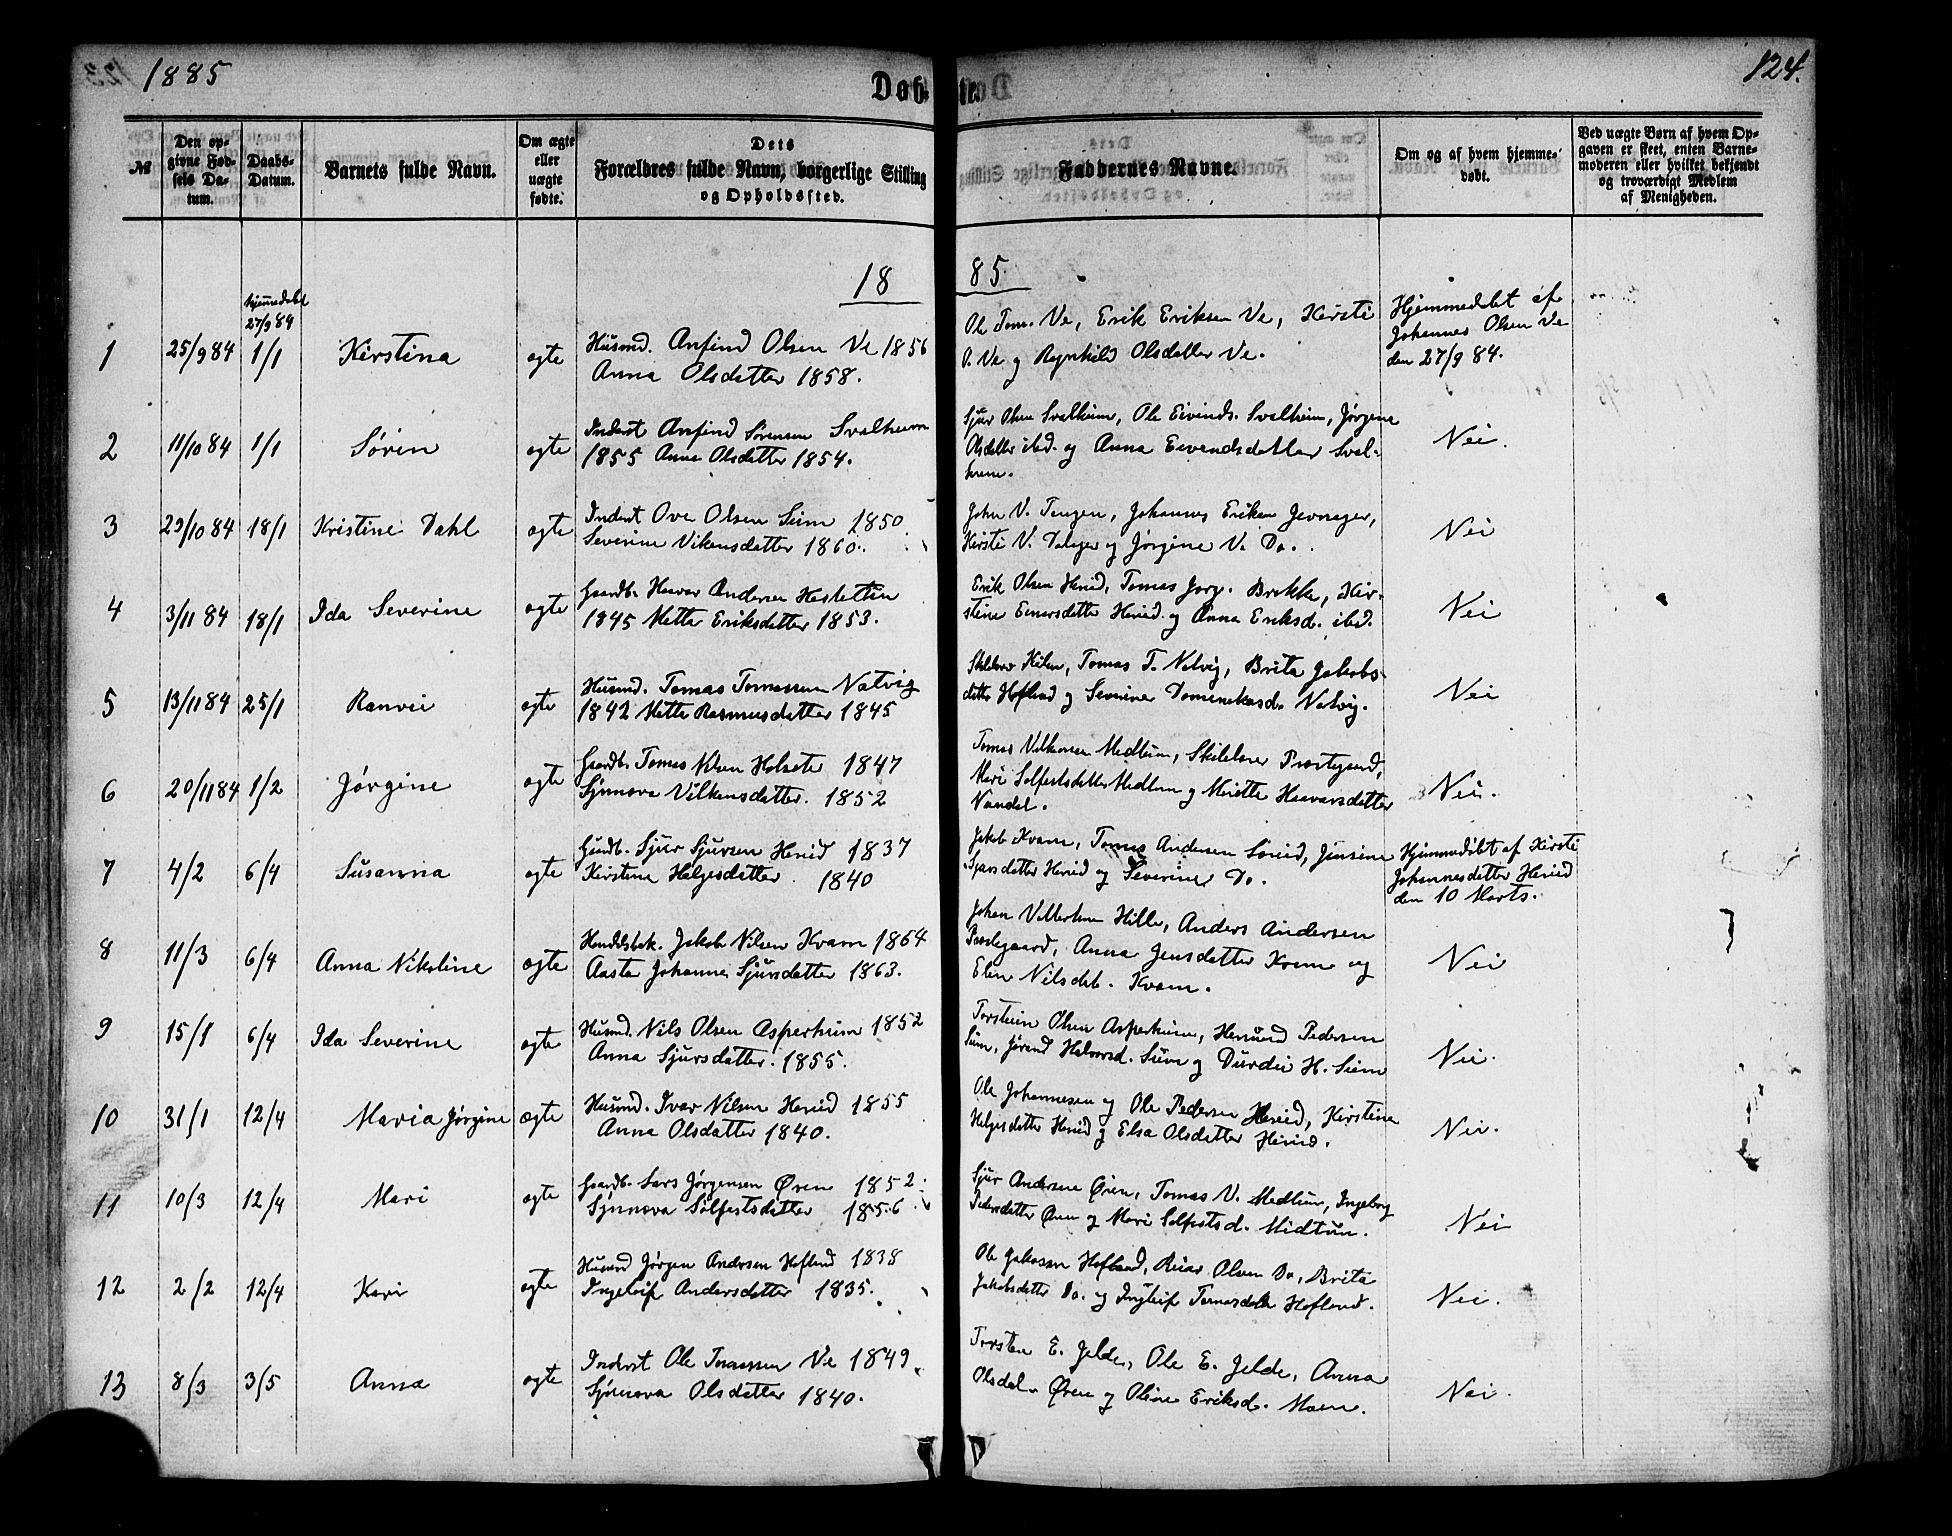 1885
124.
Døbte.
№
Den opgivne Fødsels Datum.
Daabs-Datum.
Barnets fulde Navn.
Om ægte eller uægte fødte.
Dets Forældres fulde Navn, borgerlige Stilling og Opholdssted.
Faddernes Navne.
Om og af hvem hjemmedøbt.
Ved uægte Børn af hvem Opgaven er skeet, enten Barnemoderen eller hvilket bekjendt og troværdigt Medlem af Menigheden.
1885.
1 25/9 84 hjemmedøbt 27/9 84 1/1 Kirstina ægte Husmd. Anfind Olsen Ve 1856
Anna Olsdatter 1858.
Ole Tom. Ve, Erik Eriksen Ve, Kirsti
O. Ve og Ragnhild Olsdatter Ve.
Hjemmedøbt af
Johannes Olsen Ve
den 27/9 84.
2 11/10 84 1/1 Søren ægte Inderst Anfind Sørensen Svalheim
1855 Anna Olsdatter 1854.
Sjur Olsen Svalheim, Ole Eivinds. Svalheim, Jørgine
Olsdatter ibd. og Anna Eivendsdatter Sval-
heim.
Nei.
3 29/10 84 18/1 Kristine Dahl ægte Inderst Ove Olsen Seim 1850
Severine Vikensdatter 1860.
John V. Tangen, Johannes Eriksen
Kirsti V. og Jørgine V. Do.
Nei
4 3/11 84 18/1 Ida Severine ægte Gaardb. Havar Andersen Hestetun
1845 Mette Eriksdatter 1853.
Erik Olsen Hereid, Tomas Jørg. Brekke, Kir-
stine Einarsdatter Hereid og Anna Eriksd. ibd.
Nei
5 13/11 84 25/1 Ranvei ægte Husmd. Tomas Tomassen Natvig
1842 Mette Rasmusdatter 1845
Skolelærer Tomas T. Natvig, Brita Jakobs-
datter Hofland og Severine Natvig.
Nei
6 20/11 84 1/2 Jørgine ægte Gaardb. Tomas Nilsen Holsete 1847
Synneva Vilkensdatter. 1852
Tomas Vilkensen Medtun, Skolelærer Prestegaard,
Mari Solfestsdatter Medtun og Havarsdatter
Nundal.
Nei.
7 4/2 6/4 Susanna ægte Gaardb. Sjur Sjursen Hereid 1837
Kirstine Helgesdatter. 1840
Jakob Kvam, Tomas Andersen Jensine
Sjursdatter Hereid og Severine Do.
Hjemmedøbt af Kirsti
Johannesdatter Hereid
den 10 Marts.
8 11/3 6/4 Anna Nikoline ægte Handelsbet. Jakob Nilsen Kvam 1864
Aasta Johanne Sjursdatter 1863.
Johan Hille, Anders Andersen
Prestegaard, Anna Jensdatter Kvam og
Elen Nilsdat. Kvam.
Nei
9 15/1 6/4 Ida Severine ægte Husmd. Nils Olsen Asperheim 1852
Anna Sjursdatter. 1855.
Torstein Olsen Asperheim, Pedersen
Seim, Halvorsd. Seim og Durdei H. Seim
Nei.
10 31/1 12/4 Maria Jørgine ægte Husmd. Ivar Nilsen Hereid 1855
Anna Olsdatter 1840.
Ole Johannesen og Ole Pedersen Hereid, Kirstine
Helgesdatter Hereid og Elsa Olsdatter Hereid.
Nei.
11 10/3 12/4 Mari ægte Gaardb. Lars Jørgensen Øren 1852.
Synneva Solfestsdatter 1856.
Sjur Andersen Øren, Tomas V. Medtun, Ingeborg
Pedersdatter Øren og Mari Solfestsd. Midtun.
Nei
12 2/2 12/4 Kari ægte Husmd Jørgen Andersen Hofland 1838
Ingeleif Andersdatter 1835.
Ole Jakobsen Hofland, Olsen Do, Brita
Jakobsdatter Do. og Ingleif Tomasdatter Hofland.
Nei.
13 8/3 3/5 Anna ægte Inderst Ole Tomassen Ve 1849.
Synneva Olsdatter 1840.
Torsten E. Jelde, Ole E. Jelde, Anna
Olsdat. Øren og Oline Eriksd. Moen.
Nei.